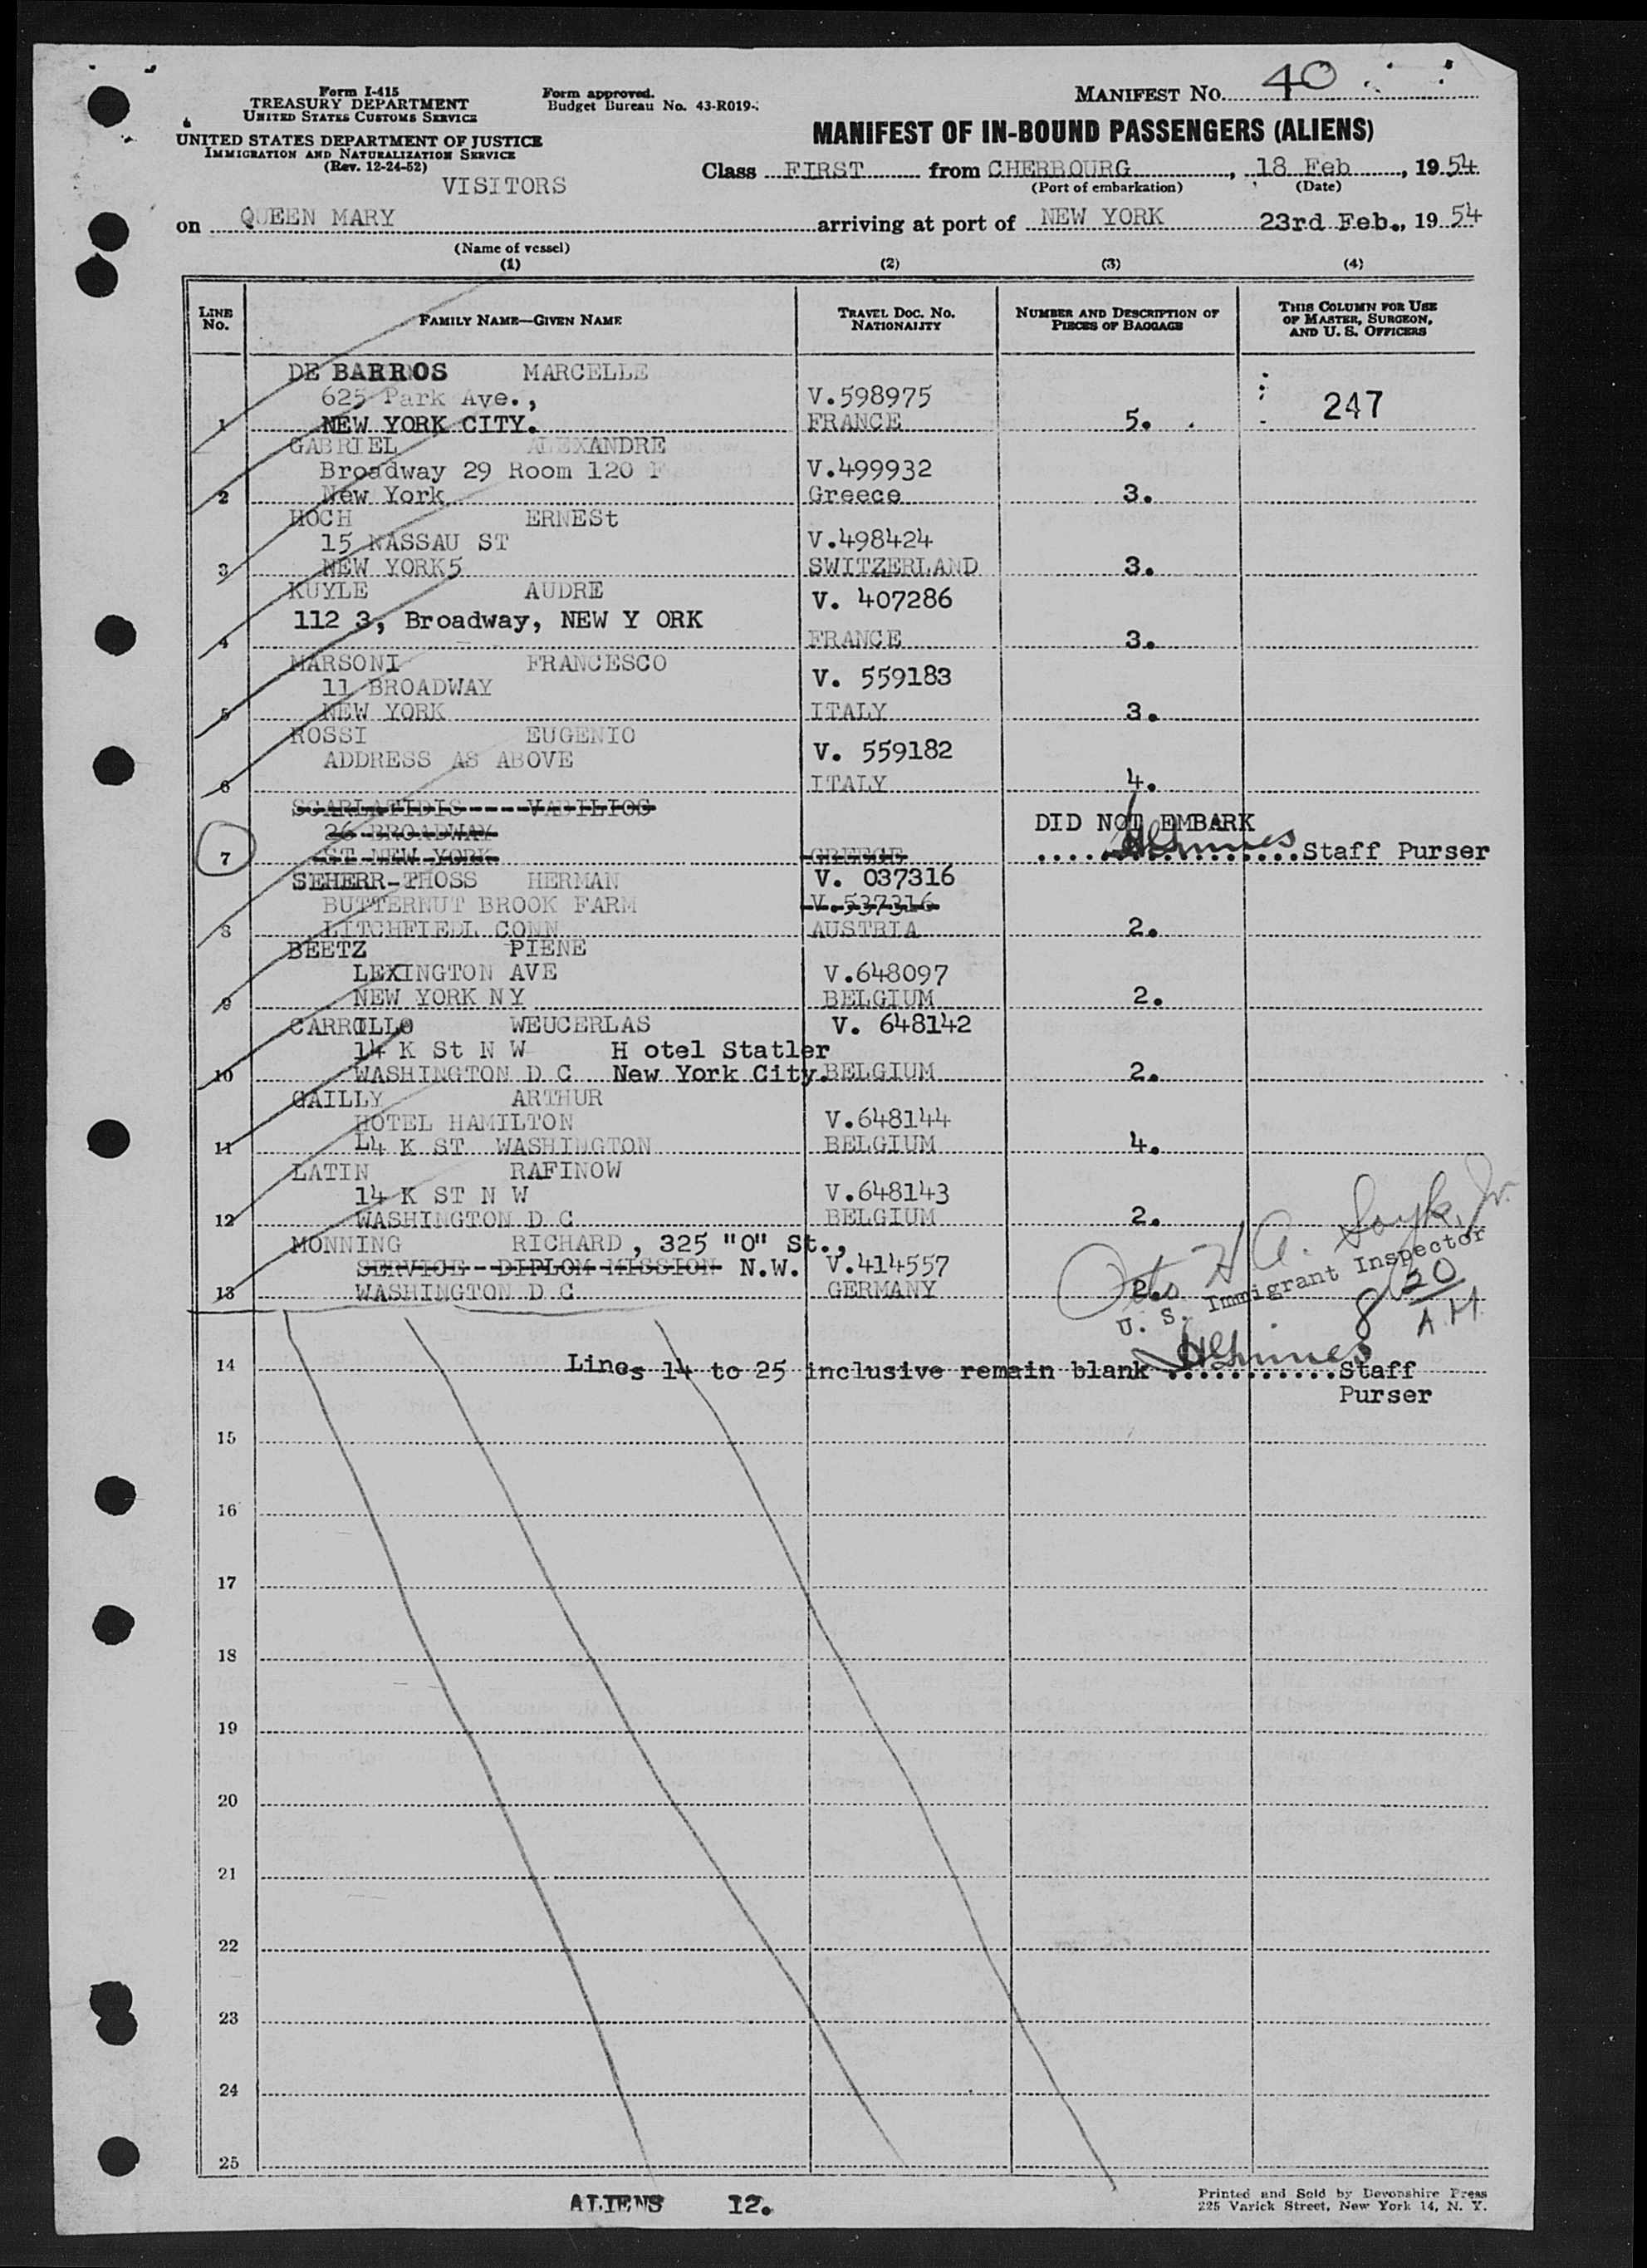 Form I-415
TREASURY DEPARTMENT
UNITED STATES CUSTOMS SERVICE
UNITED STATES DEPARTMENT OF JUSTICE
IMMIGRATION AND NATURALIZATION SERVICE
(Rev. 12-24-52)
VISITORS
Form approved.
Budget Bureau No. 43-R019-
MANIFEST No. 40
MANIFEST OF IN-BOUND PASSENGERS (ALIENS)
Class FIRST from CHERBOURG, 18 Feb, 1954
(Port of embarkation) (Date)
on QUEEN MARY arriving at port of NEW YORK 23rd Feb., 1954
(Name of vessel)
(1) (2) (3) (4)
LINE No. FAMILY NAME—GIVEN NAME TRAVEL DOC. No. NATIONALITY NUMBER AND DESCRIPTION OF PIECES OF BAGGAGE THIS COLUMN FOR USE OF MASTER, SURGEON, AND U. S. OFFICERS
DE BARROS MARCELLE
625 Park Ave., V.598975 247
1 NEW YORK CITY. FRANCE 5.
GABRIEL ALEXANDRE
Broadway 29 Room 120 V.499932
2 New York Greece 3.
HOCH ERNESt
15 NASSAU ST V.498424
3 NEW YORK5 SWITZERLAND 3.
KUYLE AUDRE V. 407286
112 3, Broadway, NEW Y ORK
4 FRANCE 3.
MARSONI FRANCESCO
11 BROADWAY V. 559183
5 NEW YORK ITALY 3.
ROSSI EUGENIO
ADDRESS AS ABOVE V. 559182
6 ITALY 4.
SCARLATIDIS VASILIOS
26 BROADWAY DID NOT EMBARK
7 ST NEW YORK GREECE Staff Purser
SEHERR-THOSS HERMAN V. 037316
BUTTERNUT BROOK FARM V.537316
8 LITCHFIEDL CONN AUSTRIA 2.
BEETZ PIENE
LEXINGTON AVE V.648097
9 NEW YORK NY BELGIUM 2.
CARROLLO WEUCERLAS V. 648142
14 K St N W H otel Statler
10 WASHINGTON D C New York City. BELGIUM 2.
GAILLY ARTHUR
HOTEL HAMILTON V.648144
11 L4 K ST WASHINGTON BELGIUM 4.
LATIN RAFINOW
14 K ST N W V.648143
12 WASHINGTON D C BELGIUM 2.
MONNING RICHARD, 325 "O" St.,
SERVICE DIPLOM MISSION N.W. V.414557
13 WASHINGTON D C GERMANY 2.
U. S. Immigrant Inspector
8 20
A.M.
14 Lines 14 to 25 inclusive remain blank Staff
Purser
15
16
17
18
19
20
21
22
23
24
25
ALIENS 12.
Printed and Sold by Devonshire Press
225 Varick Street, New York 14, N. Y.